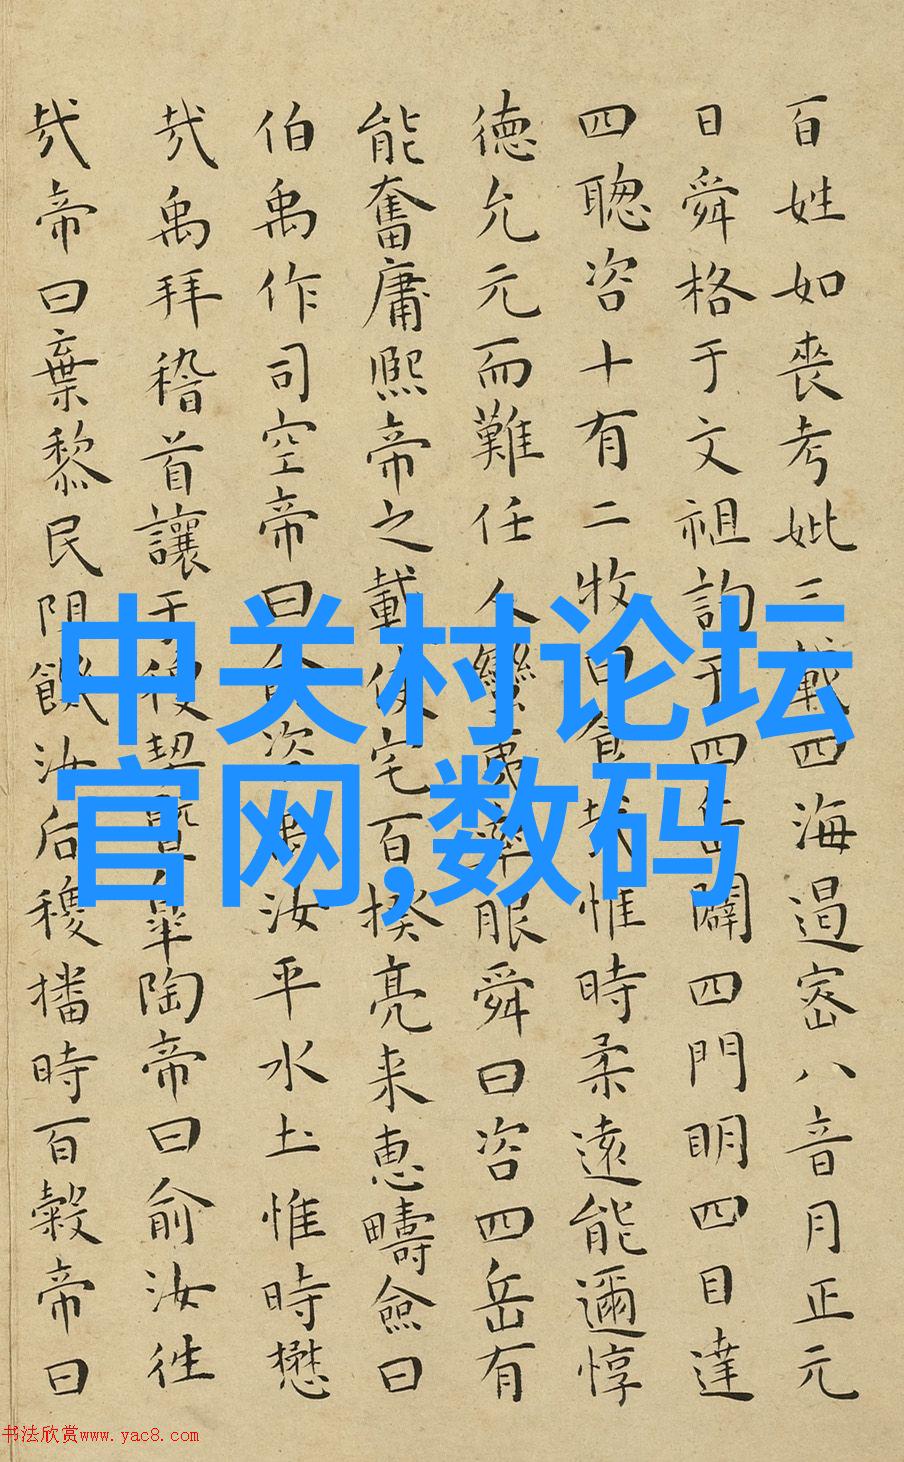 百姓如喪考妣三載四海遏密八音月正元
日舜格于文祖詢于四岳闢四門明四目達
四聰咨十有二牧曰食哉惟時柔遠能邇惇
德允元而難任人蠻夷率服舜曰咨四岳有
能奮庸熙帝之載使宅百揆亮采惠疇僉曰
伯禹作司空帝曰俞咨禹汝平水土惟時懋
哉禹拜稽首讓于稷契暨皋陶帝曰俞汝往
哉帝曰棄黎民阻飢汝后稷播時百穀帝曰
中关村论坛
官网,数码
书法欣赏www.yac8.com